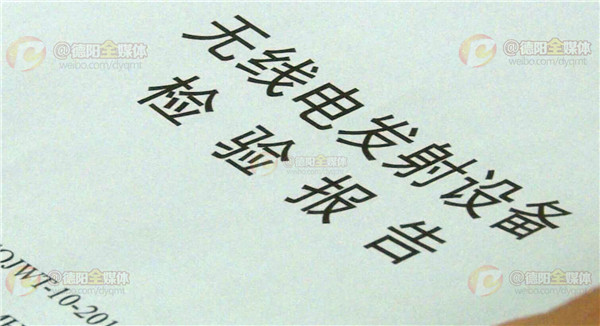 @德阳全媒体
weibo.com/dyqmt
@德阳全媒体
weibo.com/dyqmt
无线电发射设备
检验报告
@德阳全媒体
weibo.com/dyqmt
@德阳全媒体
weibo.com/dyqmt
@德阳全媒体
weibo.com/dyqmt
QJWT-10-201